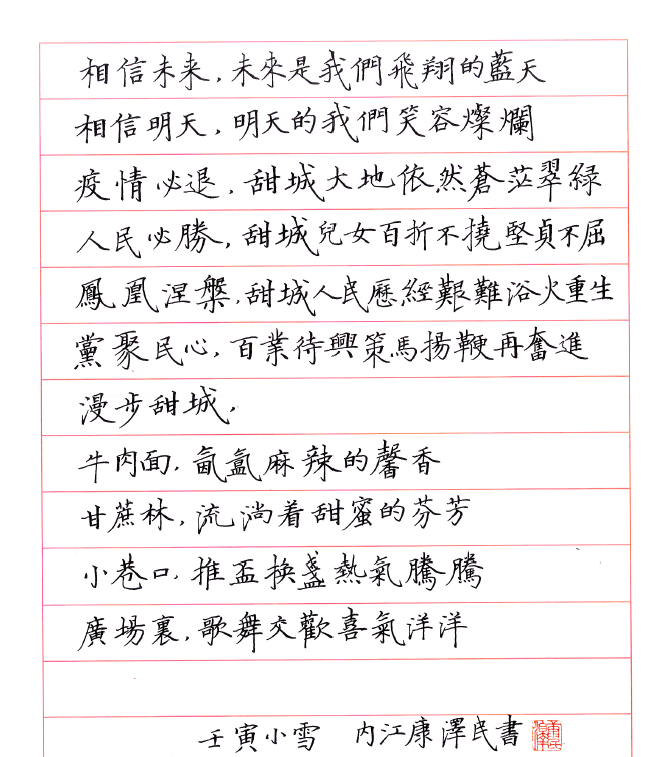 相信未来,未來是我們飛翔的藍天
相信明天,明天的我們笑容燦爛
疫情必退,甜城大地依然蒼茫翠緑
人民必勝,甜城兒女百折不撓堅貞不屈
鳳凰涅槃,甜城人民歷經艱難浴火重生
黨聚民心,百業待興策馬揚鞭再奮進
漫步甜城,
牛肉面,氤氲麻辣的馨香
甘蔗林,流淌着甜蜜的芬芳
小巷口,推盃换盞熱氣騰騰
廣場裏,歌舞交歡喜氣洋洋
壬寅小雪 内江康澤民書